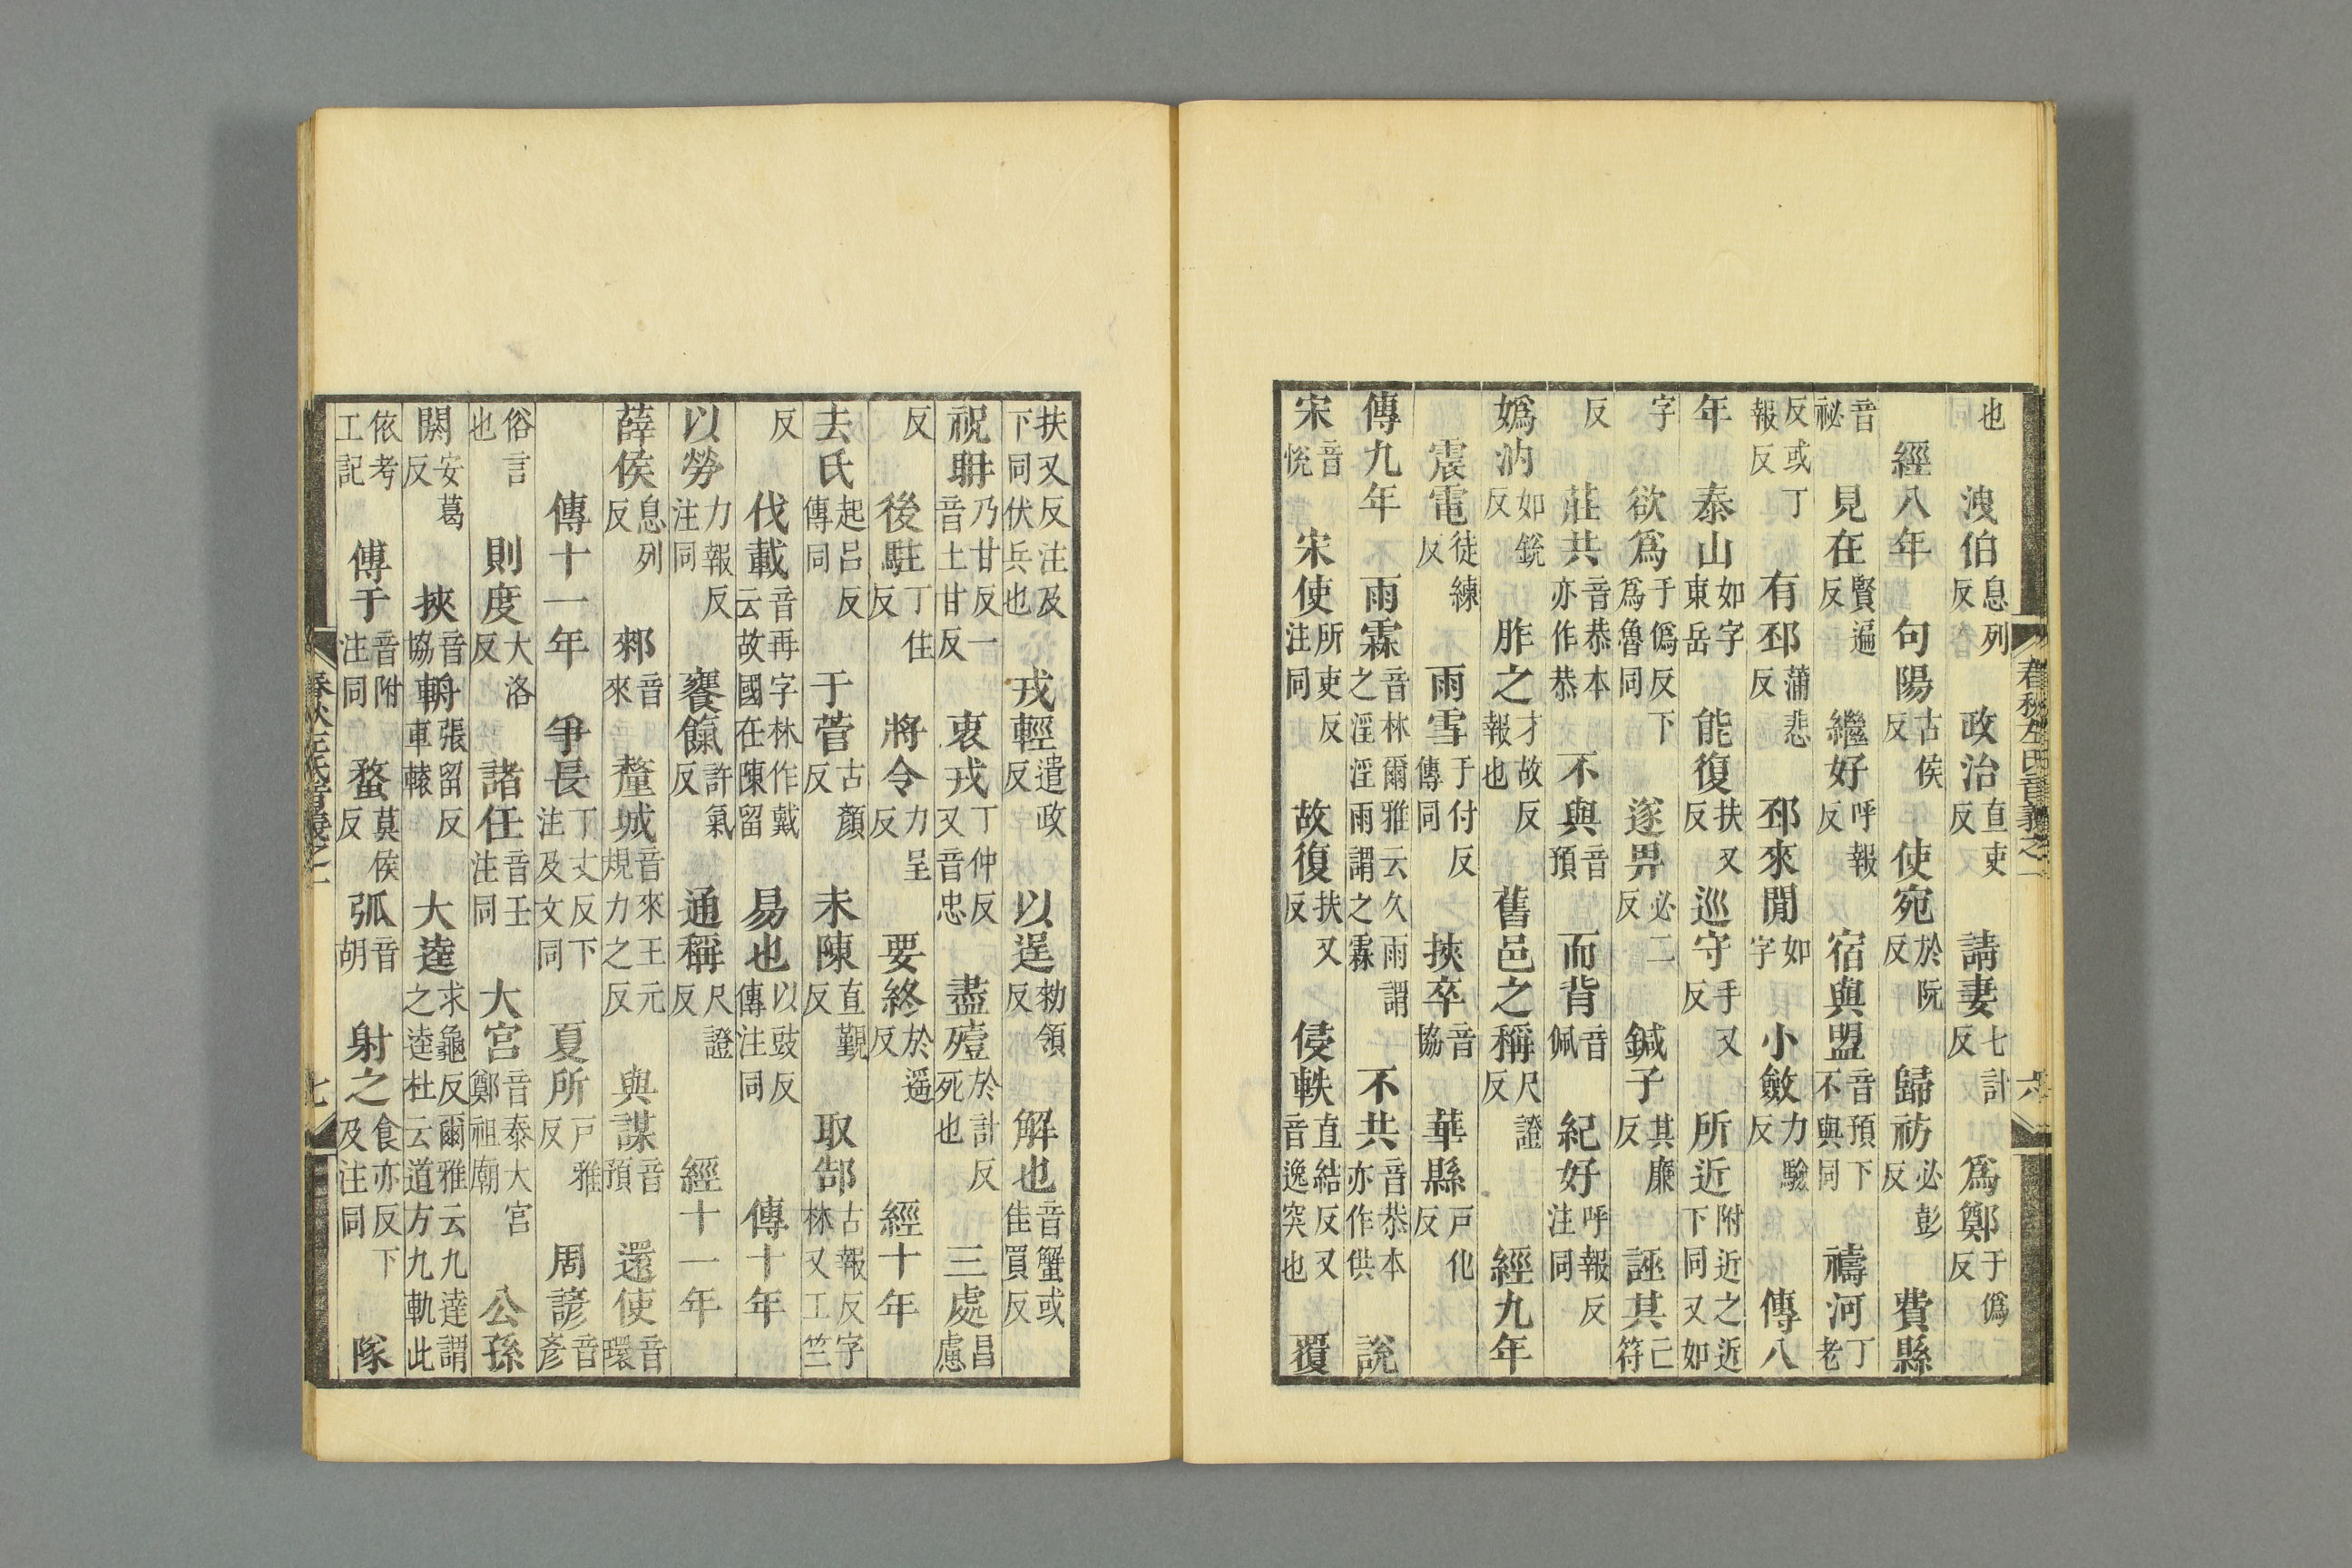 也　洩伯息列反　政治直吏反　請妻七計反　爲鄭于僞反
經八年　句陽古侯反　使宛於阮反　歸祊必彭反　費縣
音祕　見在賢遍反　繼好呼報反　宿與盟音預下不與同　禱河丁老
反或丁報反　有邳蒲悲反　邳來閒如字　小斂力驗反　傳八
年　泰山如字東岳　能復扶又反　巡守手又反　所近附近之近下同又如
字　欲爲于僞反下爲魯同　遂畀必二反　鍼子其廉反　誣其亡符
反　莊共音恭本亦作恭　不與音預　而背音佩　紀好呼報反注同
嬀汭如銳反　胙之才故反報也　舊邑之稱尺證反　經九年
震電徒練反　雨雪于付反傳同　挾卒音協　華縣戸化反
傳九年　雨霖音林爾雅云久雨謂之淫淫雨謂之霖　不共音恭本亦作供　說
宋音悅　宋使所吏反注同　故復扶又反　侵軼直結反又音逸突也　覆
春秋左氏音義之一　六
扶又反注及下同伏兵也　戎輕遣政反　以逞勑領反　解也音蟹或佳買反
祝聃乃甘反一音土甘反　衷戎丁仲反又音忠　盡殪於計反死也　三處昌慮
反　後駐丁住反　將令力呈反　要終於遥反　經十年
去氏起呂反傳同　于菅古顏反　未陳直覲反　取郜古報反字林又工竺
反　伐載音再字林作戴云故國在陳留　易也以豉反傳注同　傳十年
以勞力報反注同　饔餼許氣反　通稱尺證反　經十一年
薛侯息列反　郲音來　釐城音來王元規力之反　與謀音預　還使音環
傳十一年　爭長丁丈反下注及文同　夏所戸雅反　周諺音彥
俗言也　則度大洛反　諸任音壬注同　大宮音泰大宮鄭祖廟　公孫
閼安葛反　挾音協　輈張留反車轅　大逵求龜反爾雅云九達謂之逵杜云道方九軌此
依考工記　傅于音附注同　蝥莫侯反　弧音胡　射之食亦反下及注同　隊
春秋左氏音義之一　七